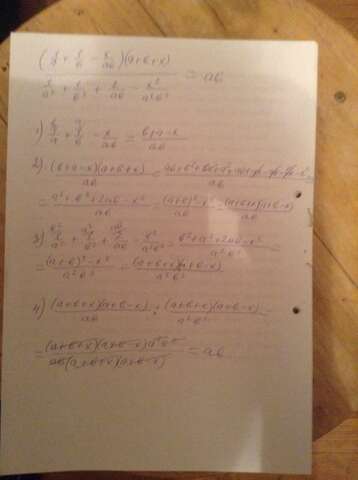 (1/a + 1/b - x/ab)(a+b+x)
1/a² + 1/b² + 2/ab - x²/a²b² = ab
1) 1/a + 1/b - x/ab = b+a-x/ab
2) (b+a-x)(a+b+x)/ab =
= a²+b²+2ab-x²/ab = (a+b)²-x²/ab = (a+b+x)(a+b-x)/ab
3) 1/a² + 1/b² + 2/ab - x²/a²b² = b²+a²+2ab-x²/a²b² =
= (a+b)²-x²/a²b² = (a+b+x)(a+b-x)/a²b²
4) (a+b+x)(a+b-x)/ab : (a+b+x)(a+b-x)/a²b² =
= (a+b+x)(a+b-x)a²b²/ab(a+b+x)(a+b-x) = ab